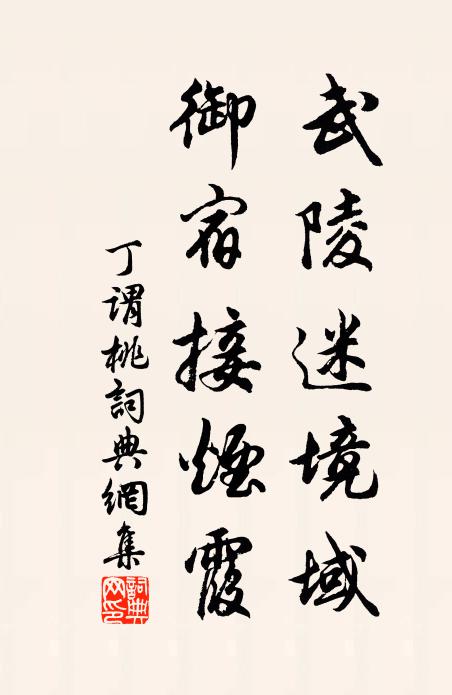 武陵迷境域
御宿接煙霞
丁謂桃詞典網集
詞典网印